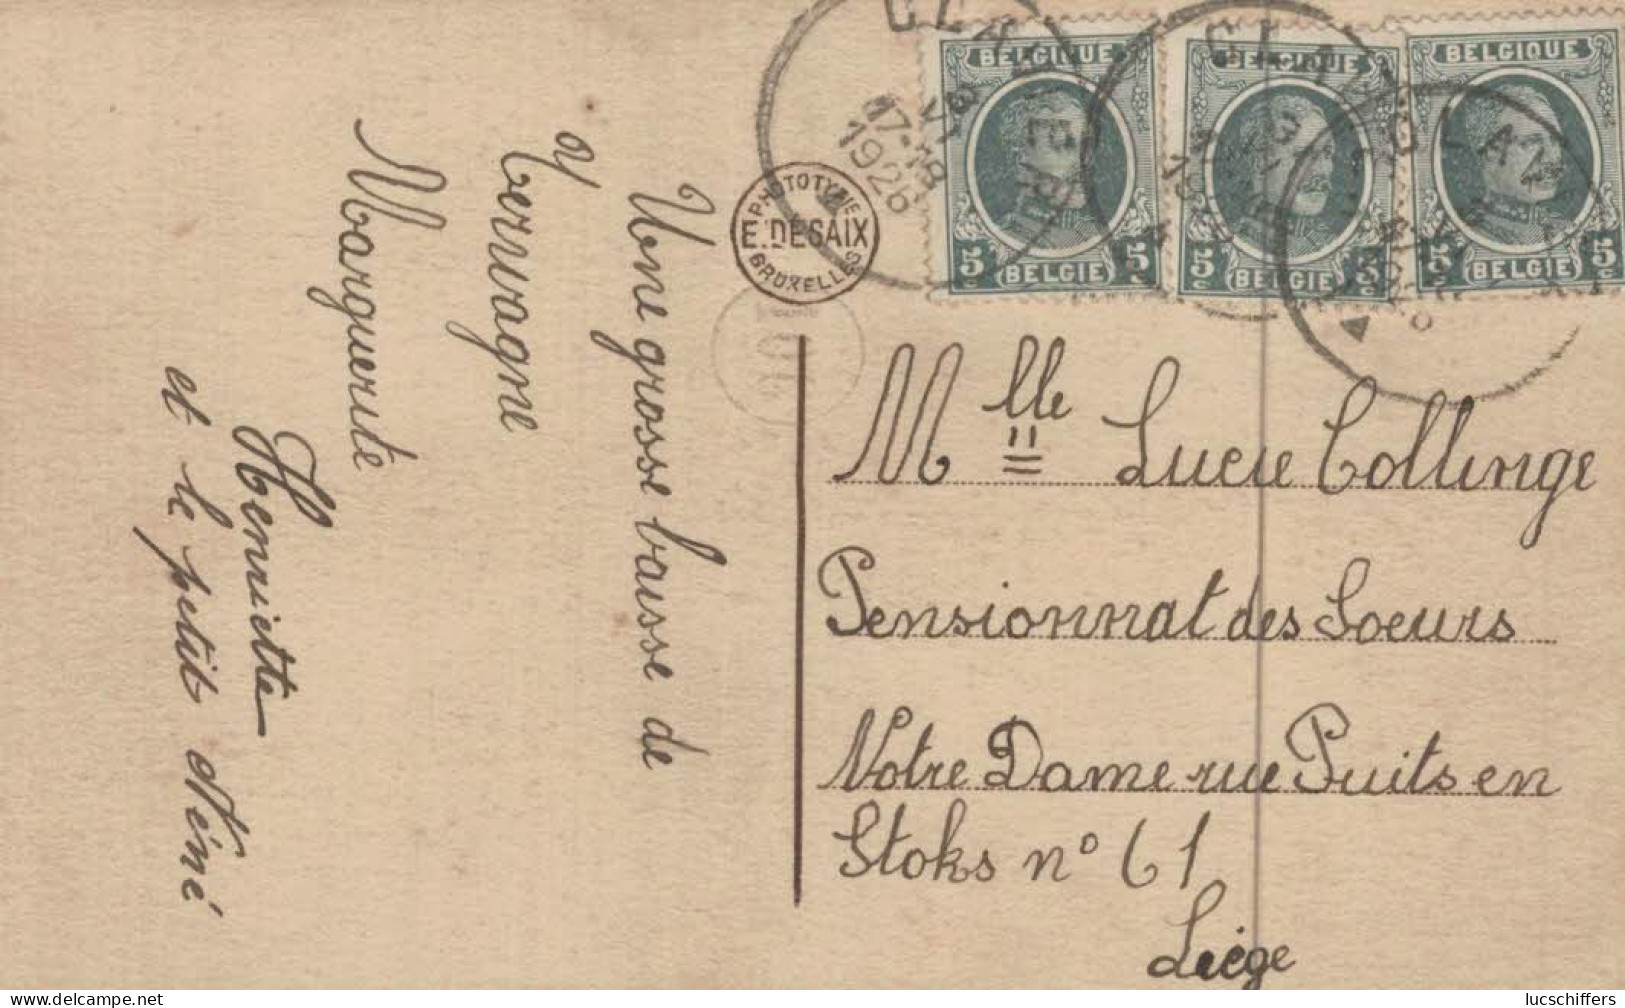 Une grosse baisse de
Tervagne
Marguerite
Henriette
et le petit Néné
PHOTOTYPIE
E. DESAIX
BRUXELLES
BELGIQUE
5c
BELGIE
5c
BELGIQUE
5c
BELGIE
5c
BELGIQUE
5c
BELGIE
5c
17-18
1926
Mlle Lucie Collinge
Pensionnat des Soeurs
Notre Dame rue Puits en
Stoks n° 61
Liége
delcampe.net
lucschiffers